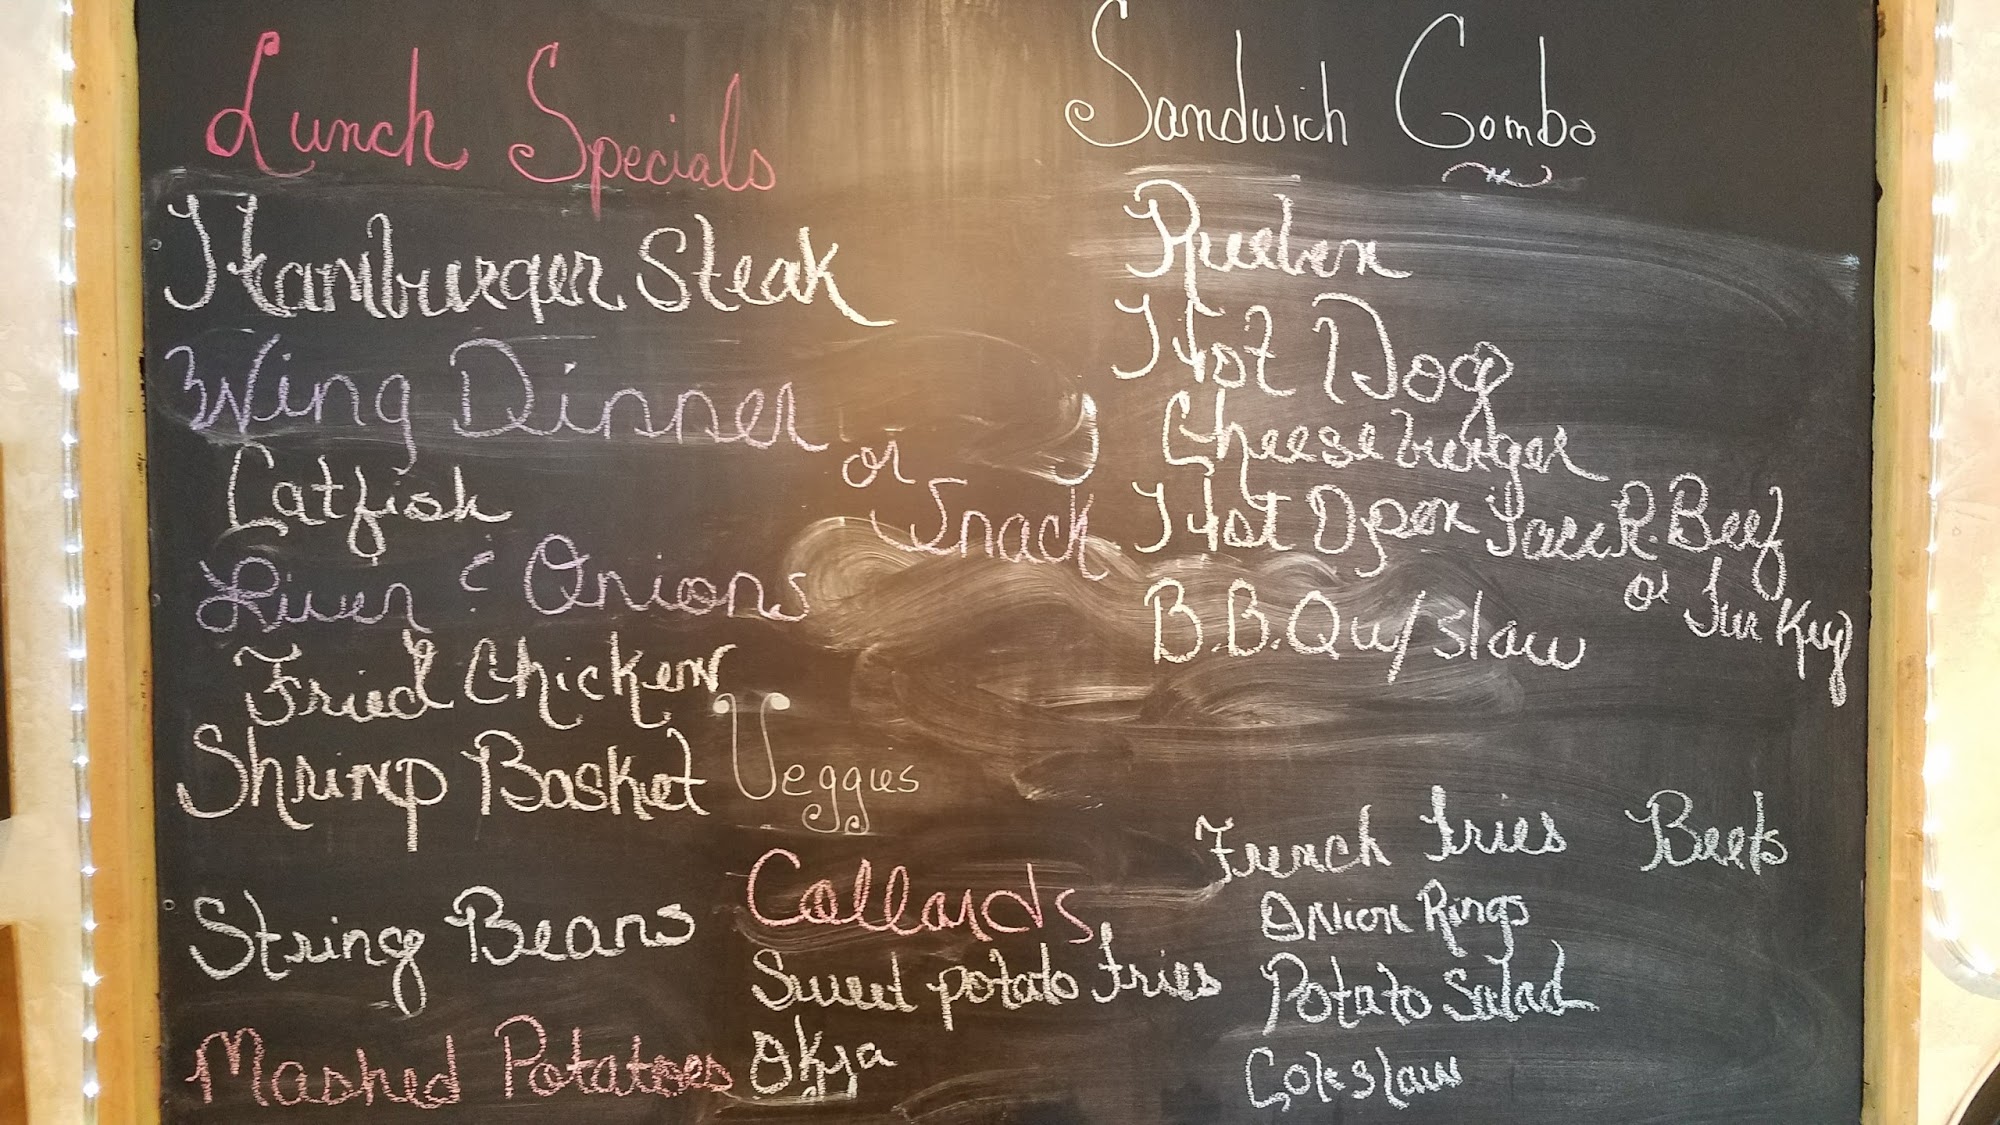 Lunch Specials
Hamburger Steak
Wing Dinner or Snack
Catfish
Liver & Onions
Fried Chicken
Shrimp Basket
Sandwich Combo
Rueben
Hot Dog
Cheeseburger
Hot Open Face R. Beef
or Turkey
B.B.Q w/ slaw
Veggies
String Beans
Mashed Potatoes
Collards
Sweet potato Fries
Okra
French Fries
Onion Rings
Potato Salad
Coleslaw
Beets